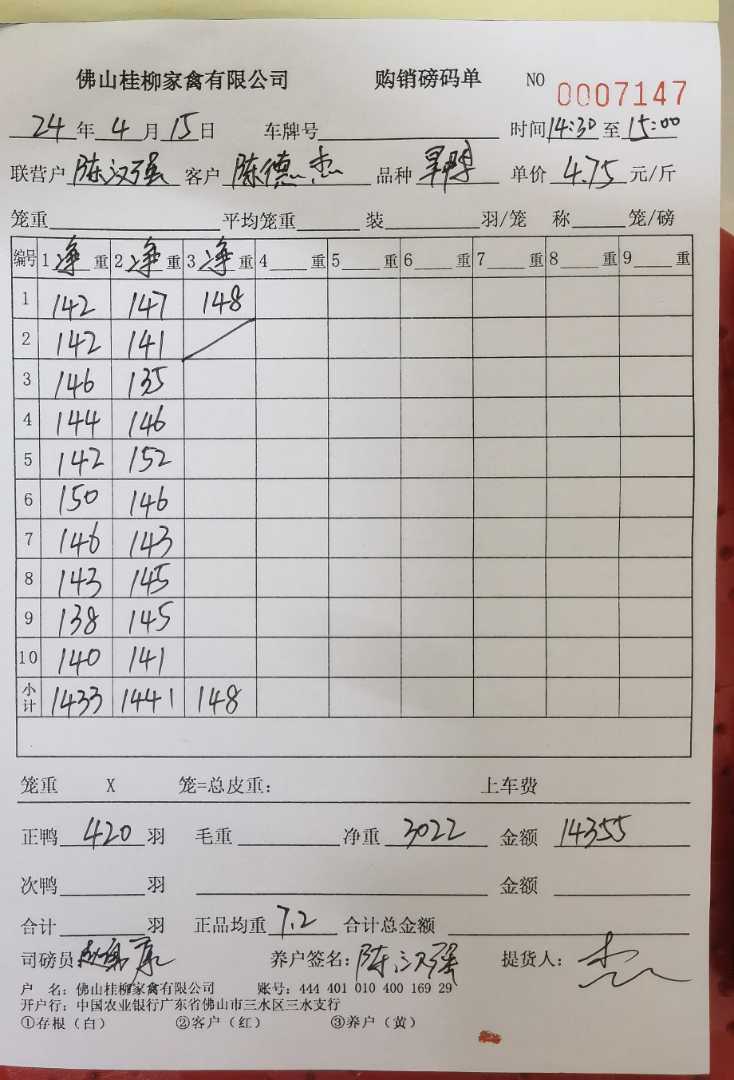 佛山桂柳家禽有限公司 购销磅码单 NO 0007147
24 年 4 月 15 日 车牌号 时间 14:30 至 15:00
联营户 陈汉强 客户 陈德杰 品种 单价 4.75 元/斤
笼重 平均笼重 装 羽/笼 称 笼/磅
编号 1 净 重 2 净 重 3 净 重 4 重 5 重 6 重 7 重 8 重 9 重
1 142 147 148
2 142 141
3 146 135
4 144 146
5 142 152
6 150 146
7 146 143
8 143 145
9 138 145
10 140 141
小计 1433 1441 148
笼重 X 笼=总皮重: 上车费
正鸭 420 羽 毛重 净重 3022 金额 14355
次鸭 羽 金额
合计 羽 正品均重 7.2 合计总金额
司磅员: 养户签名: 陈汉强 提货人: 杰
户 名: 佛山桂柳家禽有限公司 账号: 444 401 010 400 169 29
开户行: 中国农业银行广东省佛山市三水区三水支行
①存根(白) ②客户(红) ③养户(黄)